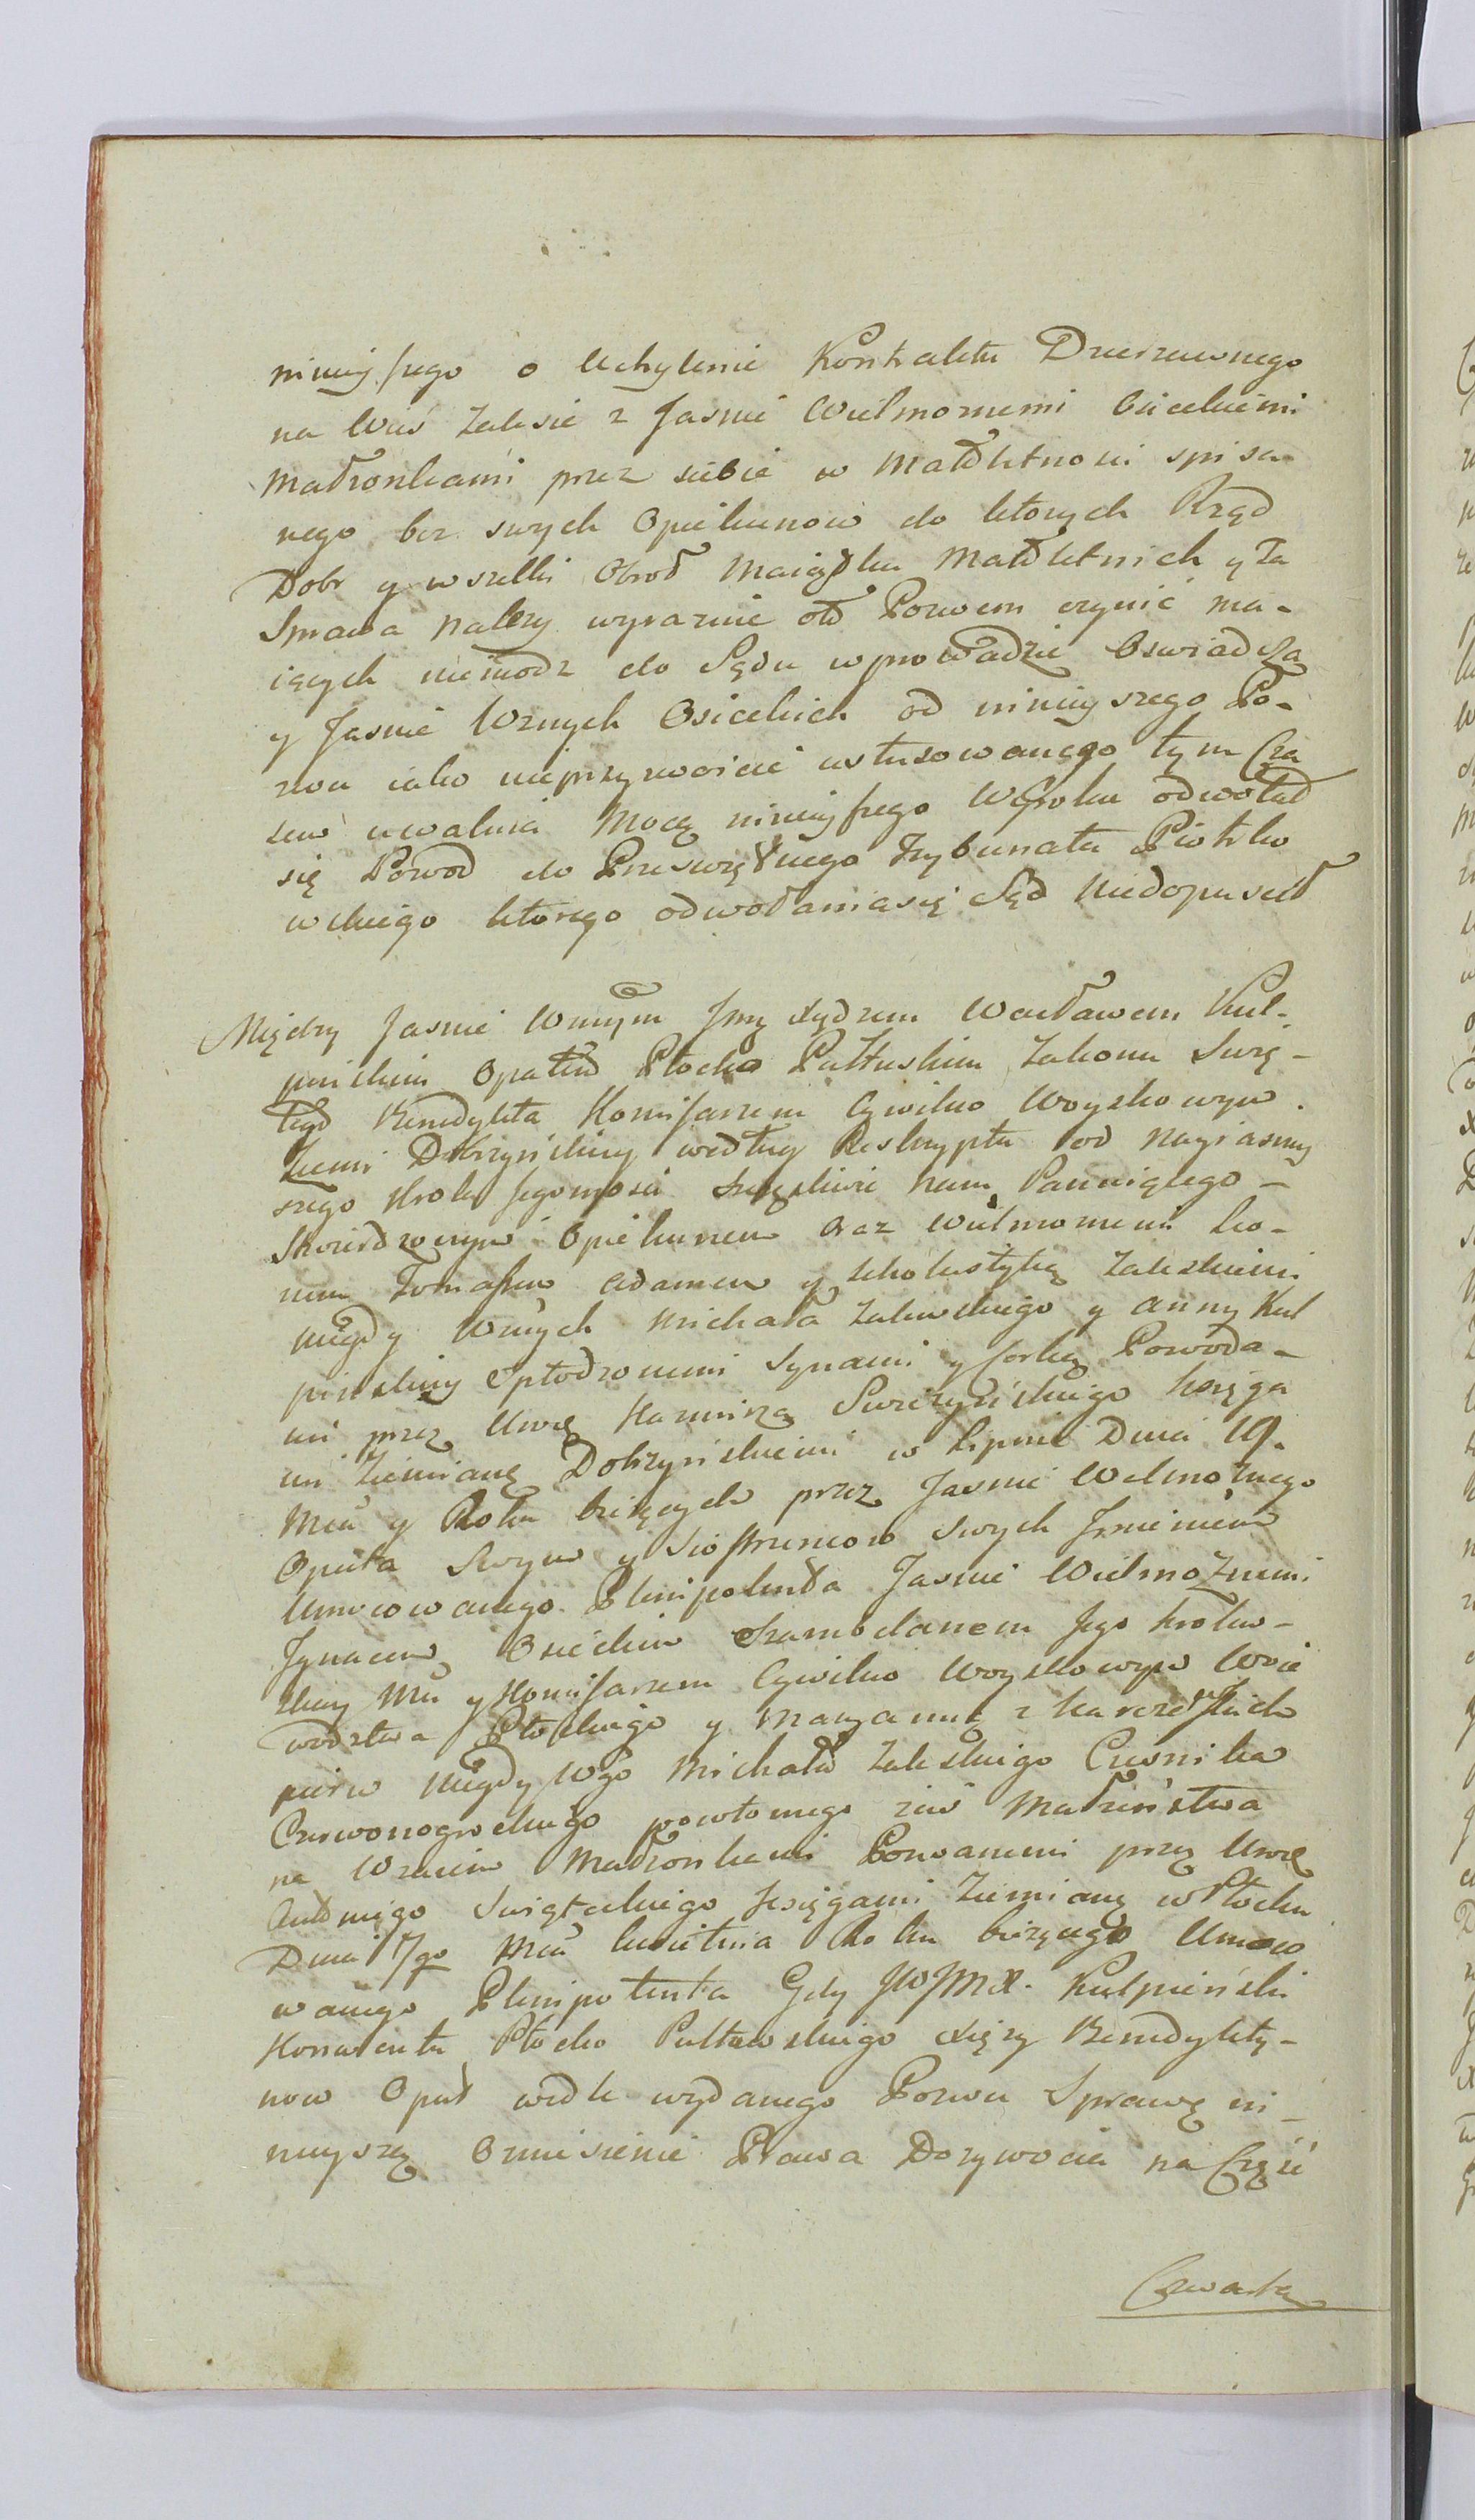 ninieyszego o Uchylenie Kontraktu Dzierzawnego
na Wieś Zalesie z Jasnie Wielmoznemi Osieckiemi
Małżonkami przez siebie w Małoletnosci spisa-
nego bez swych Opiekunow do ktorych Rząd
Dobr y wszelki Obrod Maiątku Małoletnich y ta
Sprawa nalezy wyraznie oto Pozwem czynić ma-
iących niemodz do Sądu wprowadzic Oswiadcza
y Jasnie Wznych Osieckich od ninieyszego Po-
zwu iako nieprzyzwoicie ustusowanego tym Cza
sem uwalnia Mocą ninieyszego Wyroku odwołał
się Powod do Przeswiętnego Trybunału Piotrko
wskiego ktorego odwołania się Sąd Niedopuscił
Między Jasnie Wnym Jmę Xiędzem Wacławem Kul-
pinskim Opatem Płocko Pułtuskim Zakonu Swię-
tego Benedykta Komisarzem Cywilno Woyskowym
Ziemi Dobrzyńskiey według Reskryptu od Nayiasniey
szego Krola Jegomosci Szczęsliwie Nam Panuiącego -
Stwierdzonym Opiekunem oraz Wielmoznemi Leo-
nem Tomaszem Adamem y Scholastyką Zaleskiemi
niegdy Wznych Michała Zaleskiego y Anny Kul
pinskiey Spłodzonemi Synami y Corką Powoda-
mi przez Urod Kazmirza Swiezyńskiego Xięga
mi Ziemianę Dobrzynskiemi w Lipnie Dnia 19.
Mca y Roku biezących przez Jasnie Wielmoznego
Opata Swym y Siostrzencow Swych Jmieniem
Umocowanego Plenipotenta Jasnie Wielmoznemi
Jgnacem Osieckim Szambelanem Jego Krolew-
skiey Mci y Komisarzem Cywilno Woyskowym Woie
wodztwa Płockiego y Maryanną z Karczewskich
pierw Niegdy Wgo Michała Zaleskiego Czesnika
Czerwonogrodzkiego powtornego zaś Małzeństwa
na Wzaiem Małzonkami Pozwanemi przez Urod
Antoniego Swięteckiego Xięgami Ziemianę w Płocku
Dnia 17go Mca Kwietnia Roku biezącego Umoco
wanego Plenipotenta Gdy JWJMX. Kulpieński
Konwentu Płocko Pultuwskiego Xięzy Benedykty-
now Opat wedle wydanego Pozwu Sprawę ni-
nieyszą Ozniesienie Prawa Dozywocia na Częsć
Czwartą